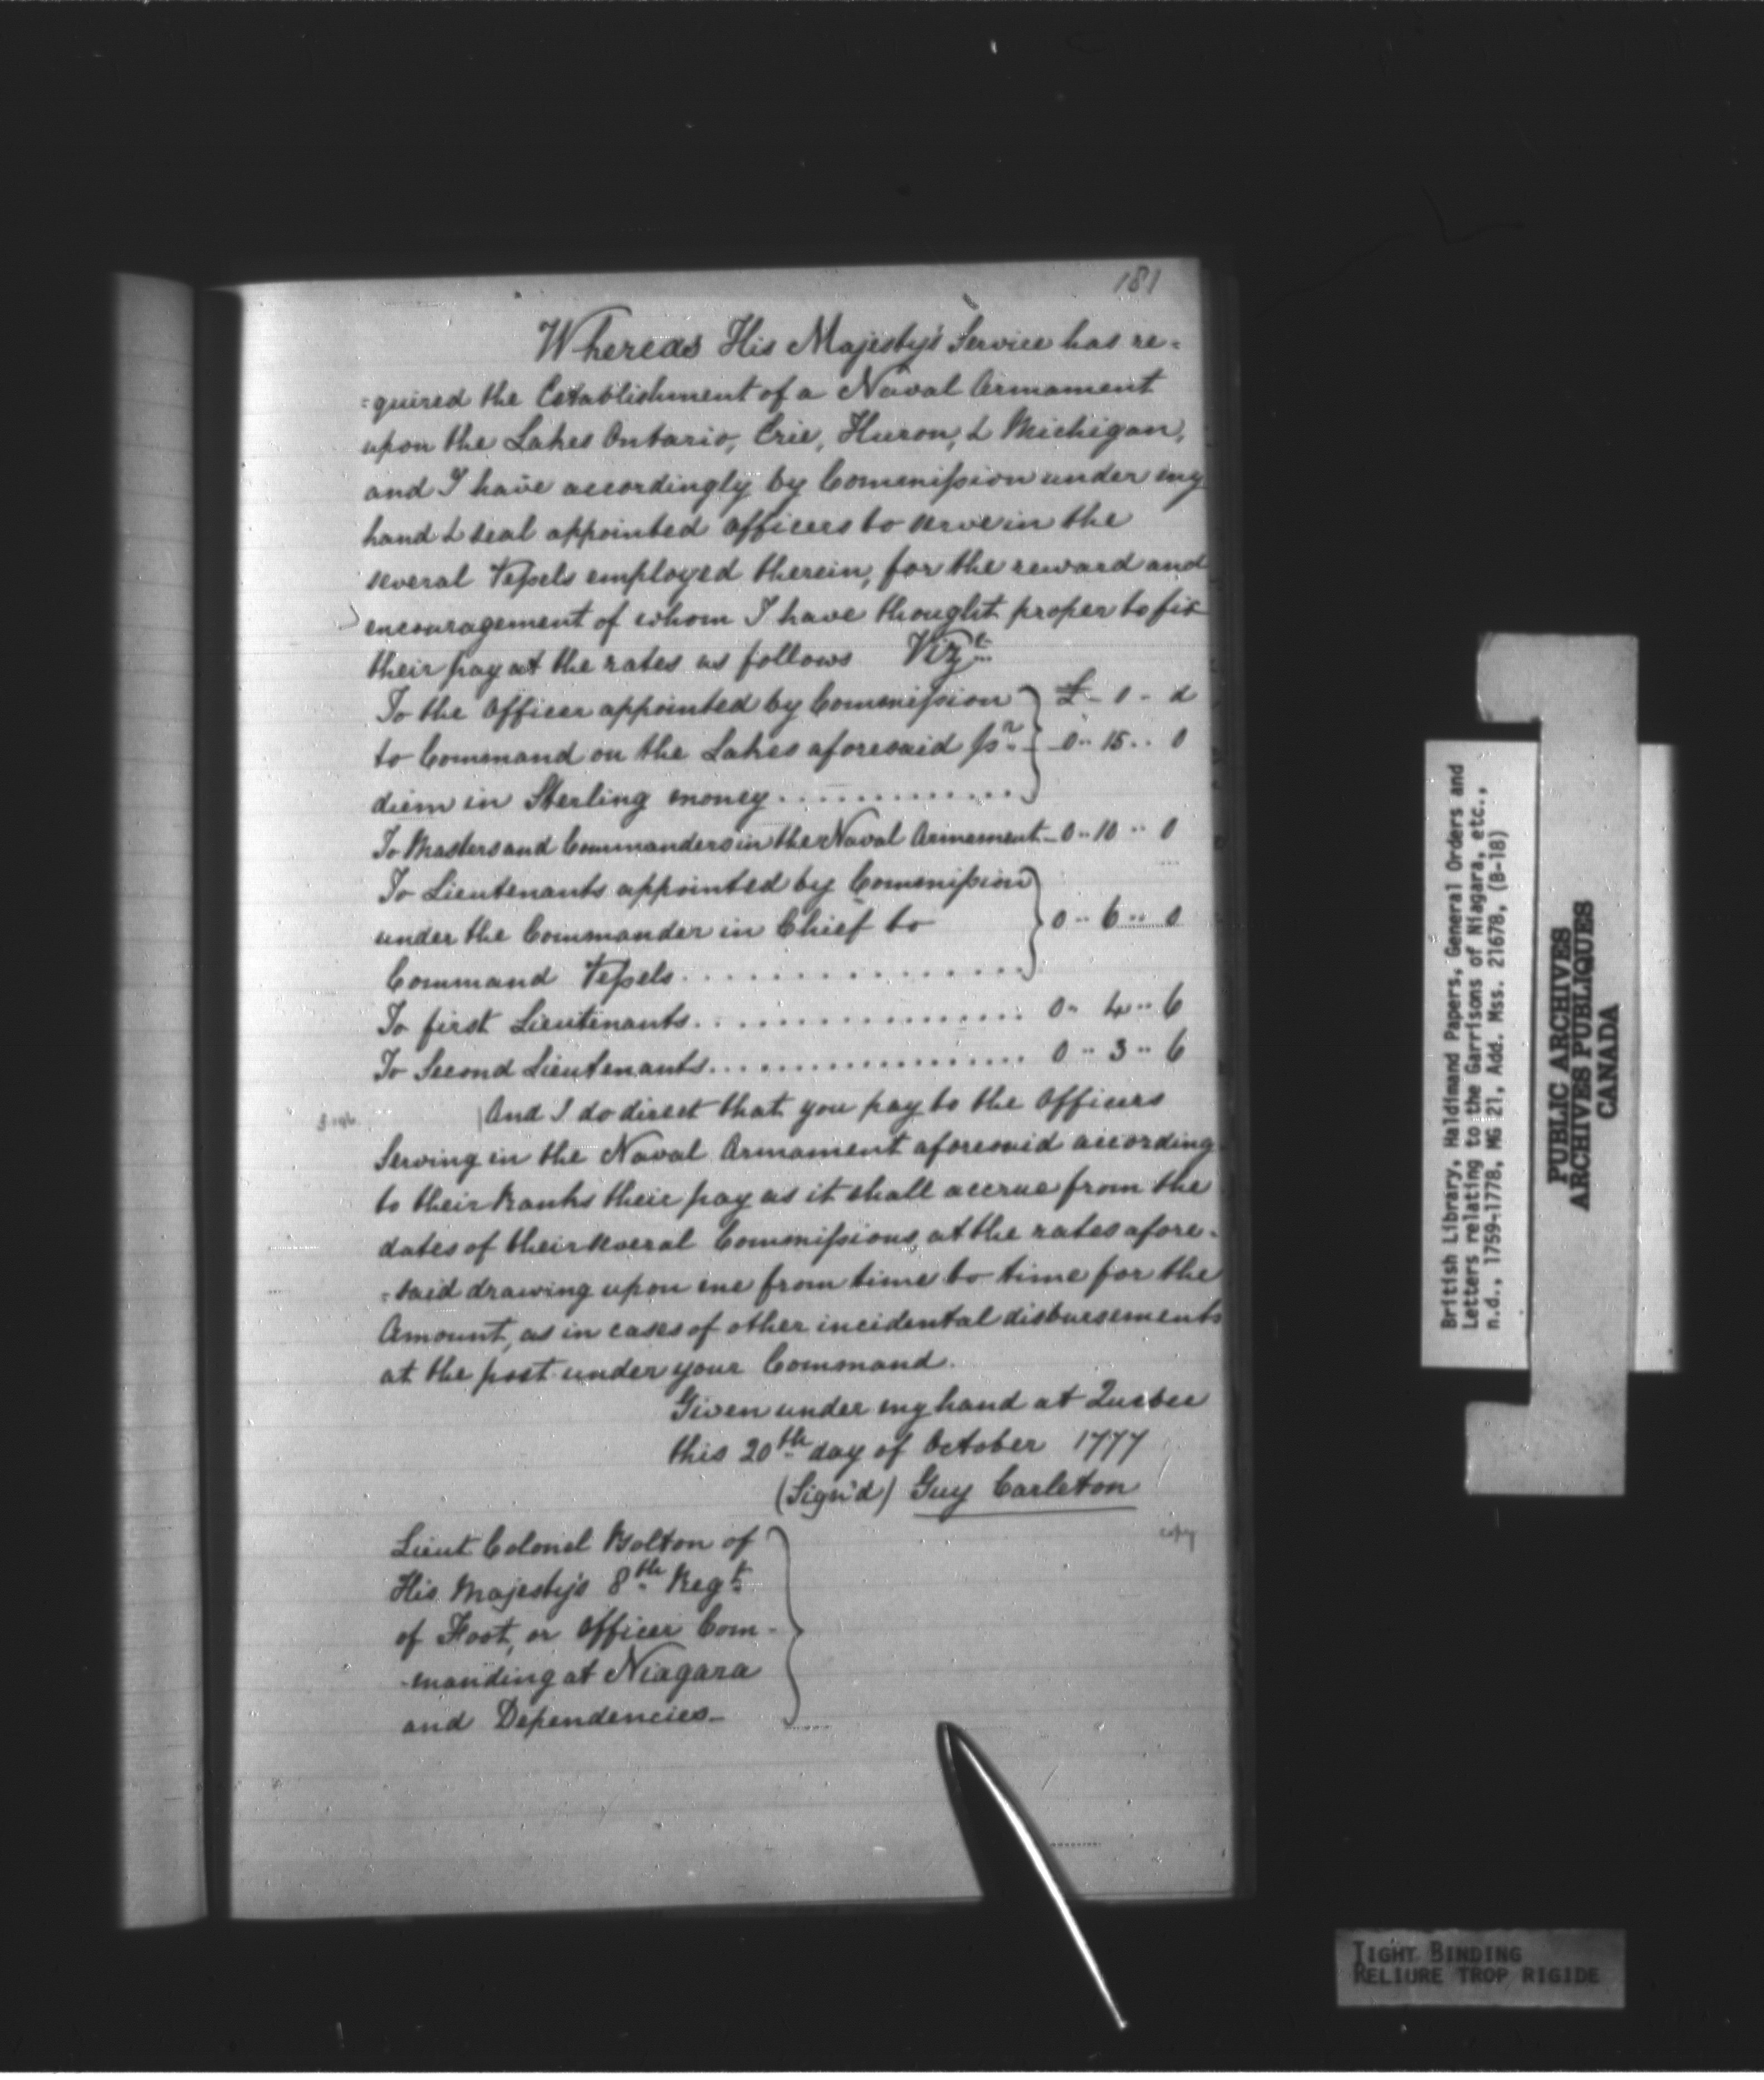 181
Whereas His Majesty's Service has re=
=quired the Establishment of a Naval Armament
upon the Lakes Ontario, Erie, Huron, & Michigan,
and I have accordingly by Commission under my
hand & seal appointed Officers to serve in the
several Vessels employed therein, for the reward and
encouragement of whom I have thought proper to fix
their pay at the rates as follows Vizt
To the Officer appointed by Commission } £ - s - d
to Command on the Lakes aforesaid pr } 0 .. 15 .. 0
diem in Sterling money..............}
To Masters and Commanders in the Naval Armament - 0 .. 10 .. 0
To Lieutenants appointed by Commission }
under the Commander in Chief to } 0 .. 6 .. 0
Command Vessels................}
To first Lieutenants................. 0 .. 4 .. 6
To Second Lieutenants................ 0 .. 3 .. 6
And I do direct that you pay to the Officers
Serving in the Naval Armament aforesaid according
to their Ranks their pay as it shall accrue from the
dates of their several Commissions at the rates afore-
=said drawing upon me from time to time for the
Amount, as in cases of other incidental disbursements
at the post under your Command.
Given under my hand at Quebec
this 20th day of October 1777
(Sign'd) Guy Carleton
copy
Lieut Colonel Bolton of
His Majesty's 8th Regt
of Foot, or Officer Com-
-manding at Niagara
and Dependencies_
British Library, Haldimand Papers, General Orders and
Letters relating to the Garrisons of Niagara, etc.,
n.d., 1759-1778, MG 21, Add. Mss. 21678, (B-18)
PUBLIC ARCHIVES
ARCHIVES PUBLIQUES
CANADA
TIGHT BINDING
RELIURE TROP RIGIDE